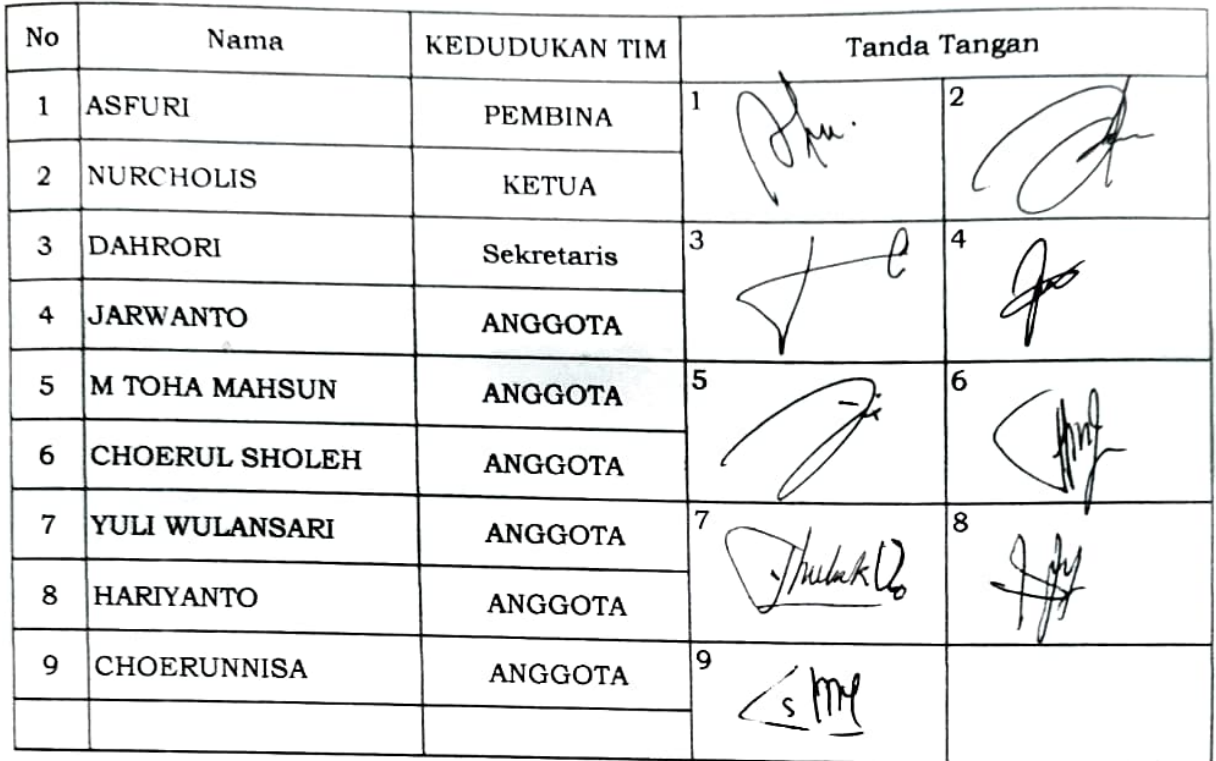 No Nama KEDUDUKAN TIM Tanda Tangan
1 ASFURI PEMBINA 1 2
2 NURCHOLIS KETUA
3 DAHRORI Sekretaris 3 4
4 JARWANTO ANGGOTA
5 M TOHA MAHSUN ANGGOTA 5 6
6 CHOERUL SHOLEH ANGGOTA
7 YULI WULANSARI ANGGOTA 7 8
8 HARIYANTO ANGGOTA
9 CHOERUNNISA ANGGOTA 9